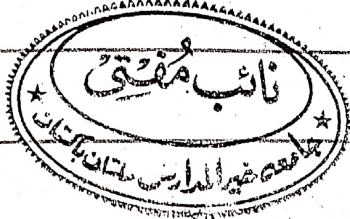 نائب مُفتی
جامعہ خیر المدارس ملتان پاکستان